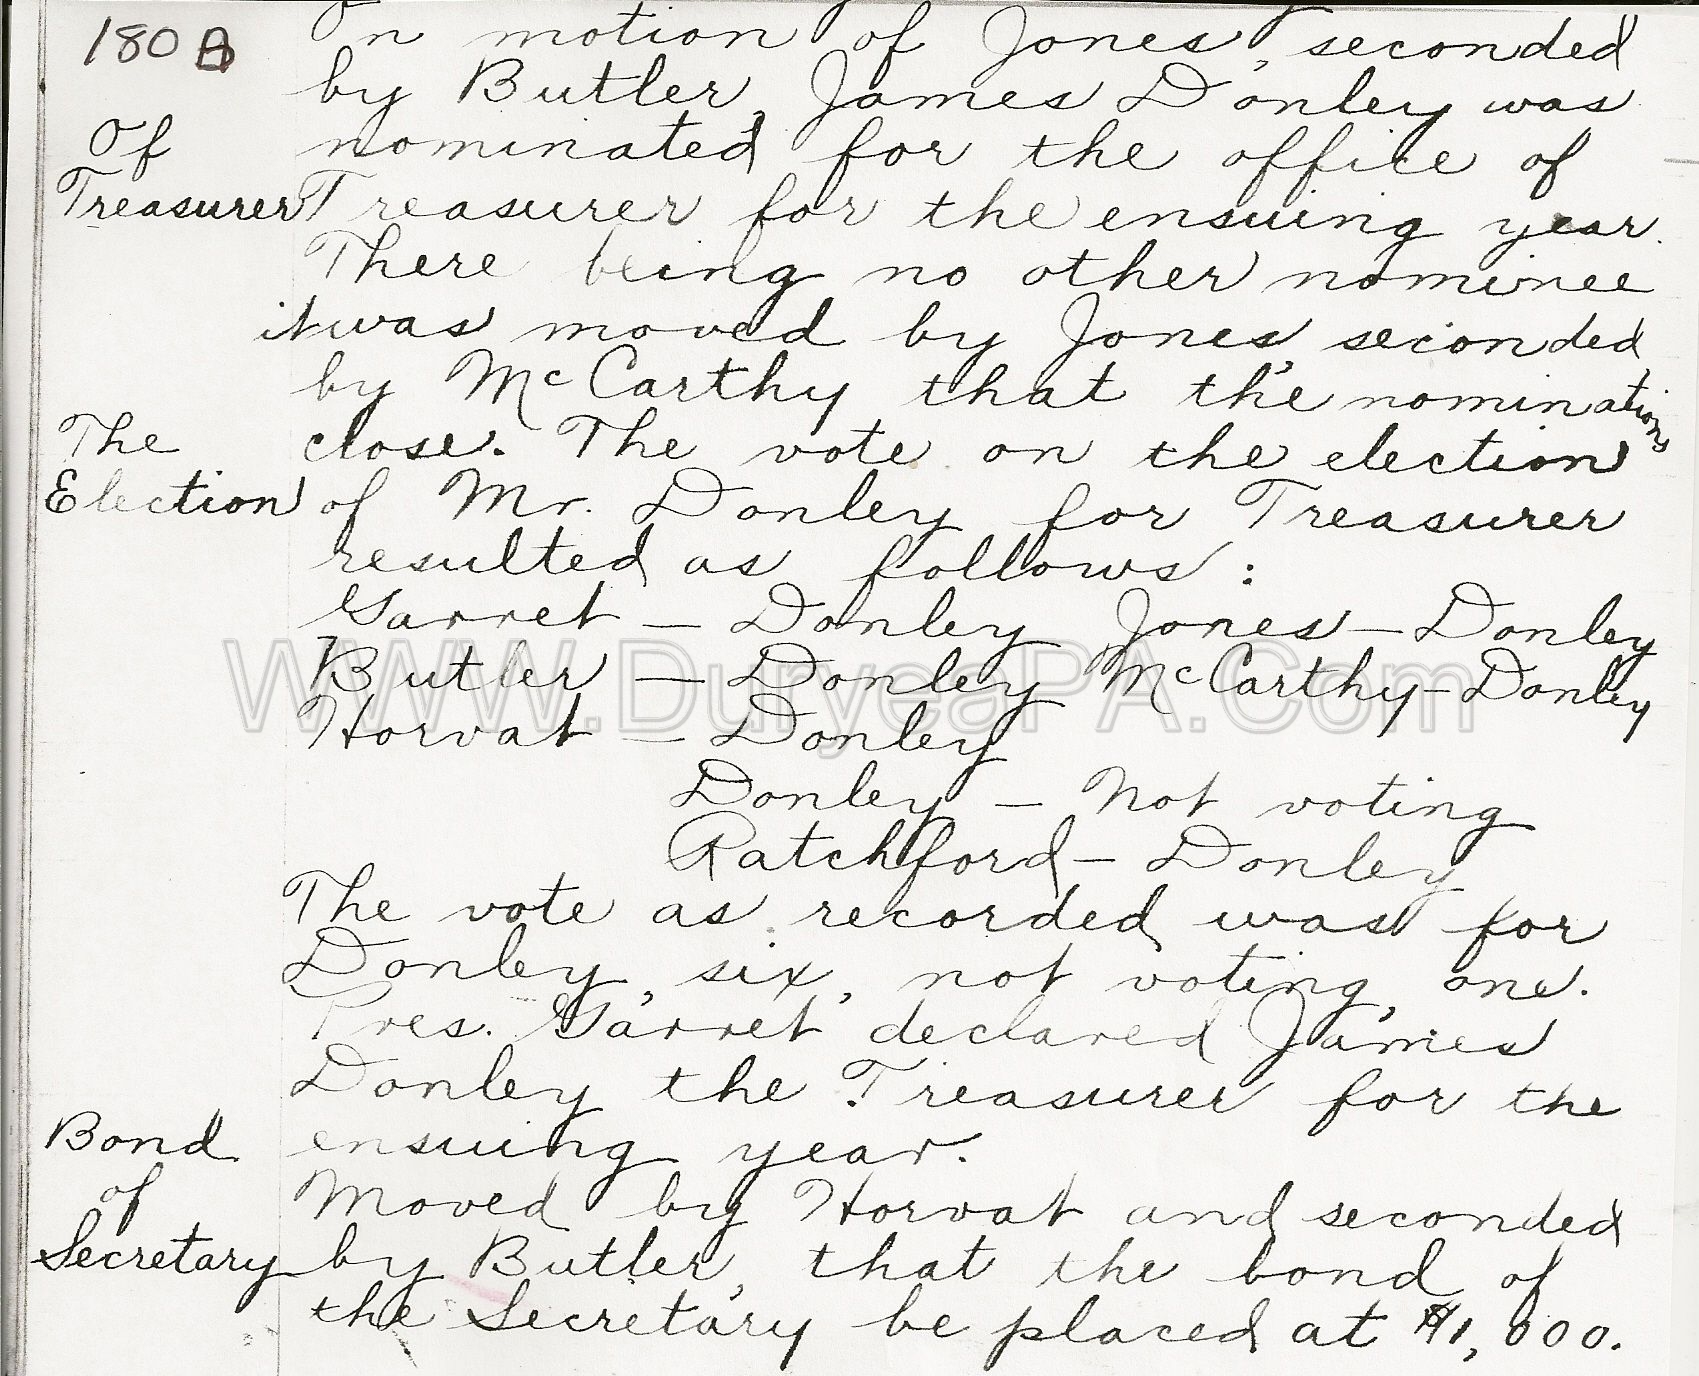 180 A
On motion of Jones, seconded
by Butler, James Donley was
Of nominated for the office of
Treasurer Treasurer for the ensuing year.
There being no other nominee
it was moved by Jones, seconded
by McCarthy that the nominations
The close. The vote on the election
Election of Mr. Donley for Treasurer
resulted as follows:
Garret - Donley Jones - Donley
Butler - Donley McCarthy - Donley
WWW.DuryeaPA.Com
Horvat - Donley
Donley - Not voting
Ratchford - Donley
The vote as recorded was for
Donley, six, not voting, one.
Pres. Garret declared James
Donley the Treasurer for the
Bond ensuing year.
of Moved by Horvat and seconded
Secretary by Butler, that the bond of
the Secretary be placed at $1,000.